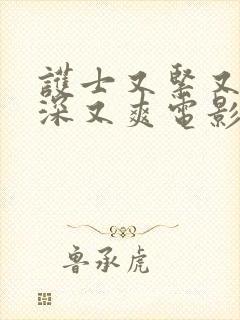 護士又緊又
深又爽電影
鲁承虎